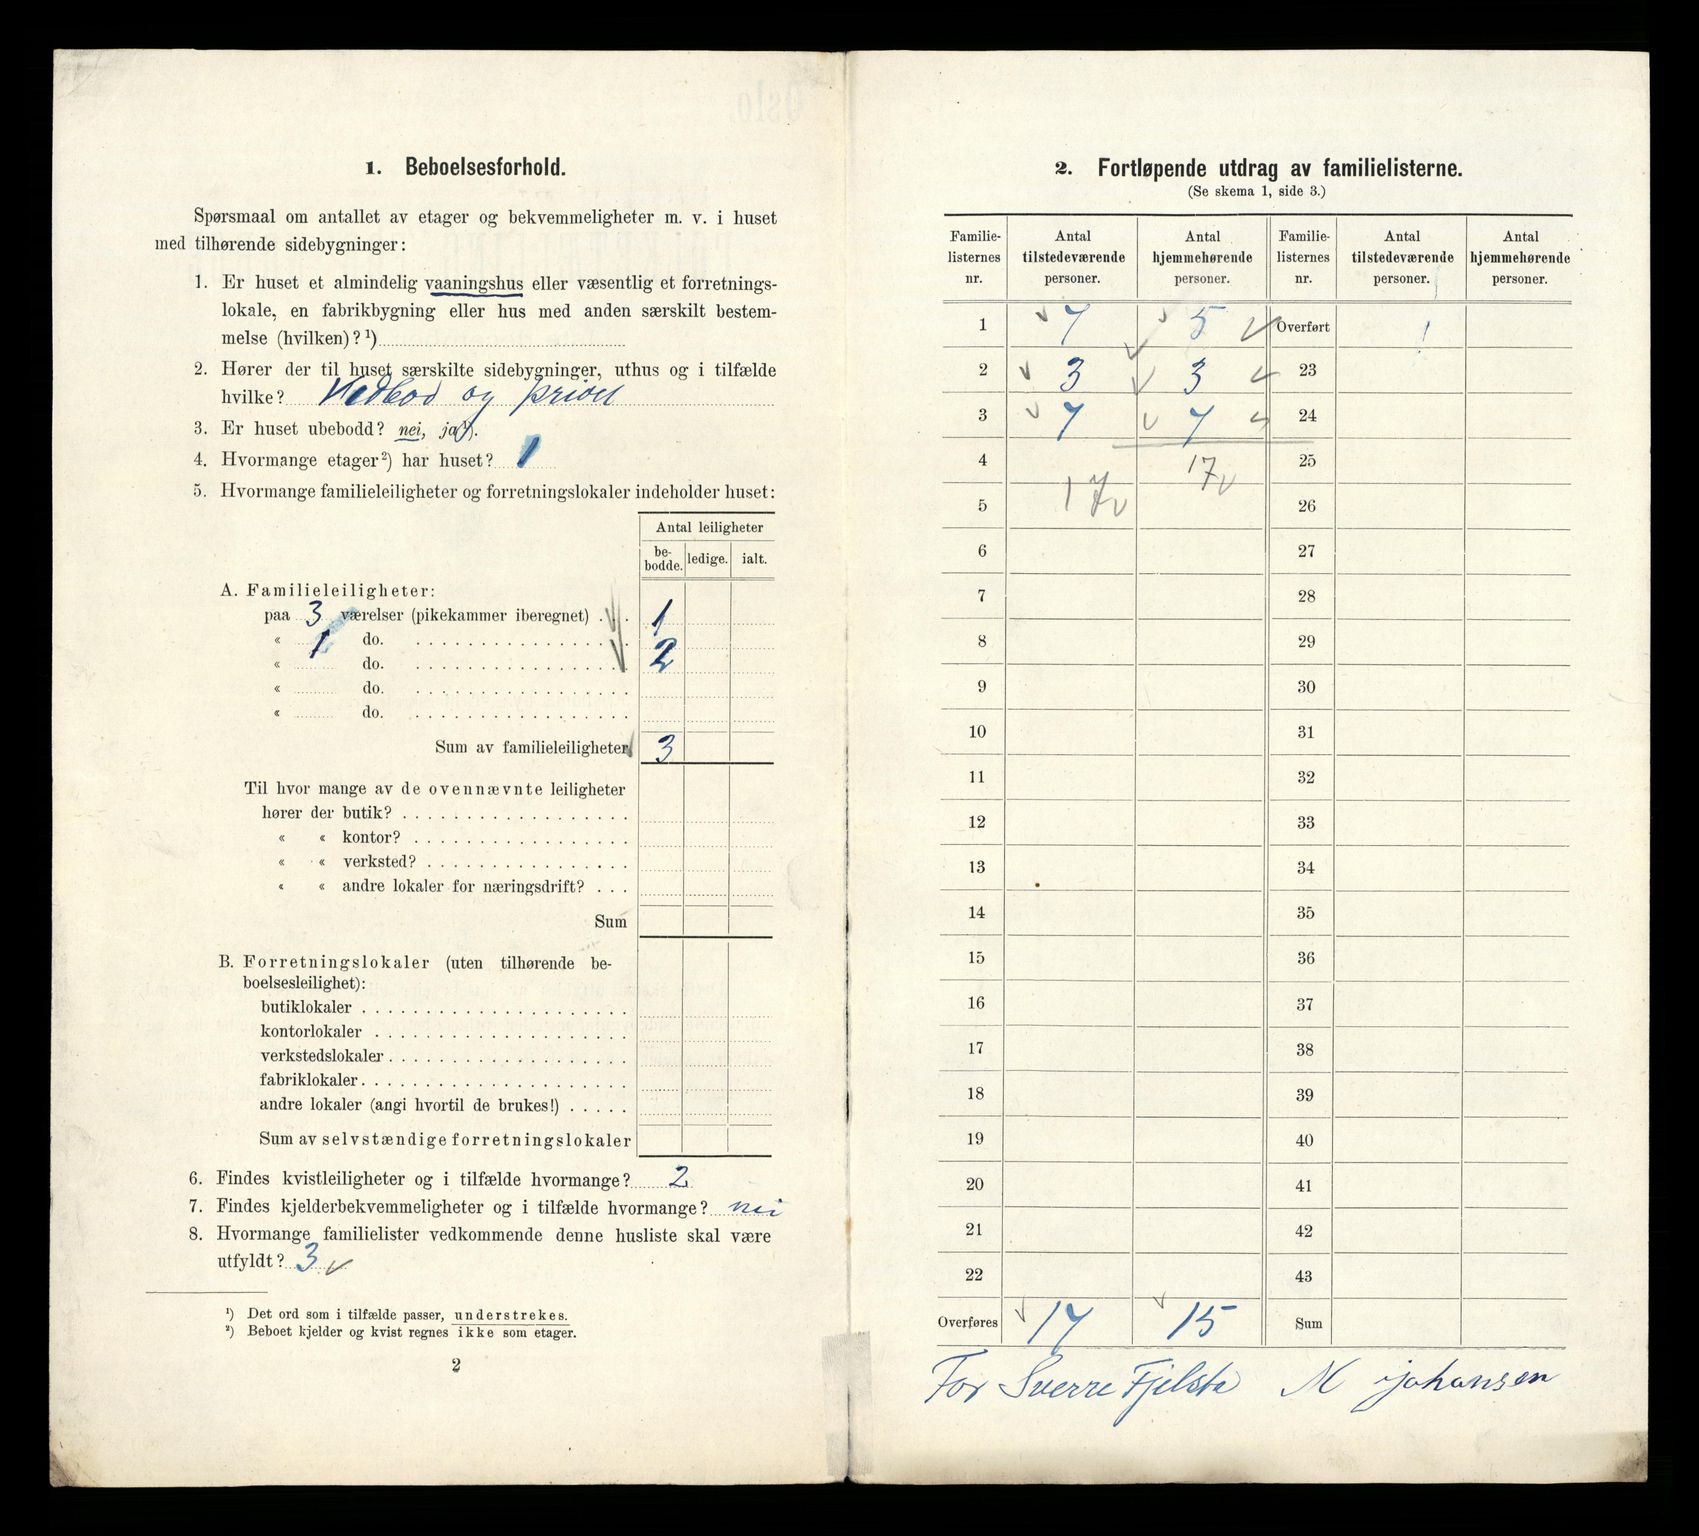 1. Beboelsesforhold.
Spørsmaal om antallet av etager og bekvemmeligheter m. v. i huset
med tilhørende sidebygninger:
1. Er huset et almindelig vaaningshus eller væsentlig et forretnings-
lokale, en fabrikbygning eller hus med anden særskilt bestem-
melse (hvilken)? ¹)
2. Hører der til huset særskilte sidebygninger, uthus og i tilfælde
hvilke? Vedbod og privet
3. Er huset ubebodd? nei, ja¹).
4. Hvormange etager²) har huset? 1
5. Hvormange familieleiligheter og forretningslokaler indeholder huset:
Antal leiligheter
be-
bodde. ledige. ialt.
A. Familieleiligheter:
paa 3 værelser (pikekammer iberegnet) . . 1
« 1 do. . . . . . . . . . . . . . . . .
« do. . . . . . . . . . . . . . . . . 2
« do. . . . . . . . . . . . . . . . .
« do. . . . . . . . . . . . . . . . .
Sum av familieleiligheter 3
Til hvor mange av de ovennævnte leiligheter
hører der butik? . . . . . . . . . . . . . . . . . .
« « kontor? . . . . . . . . . . . . . . . . .
« « verksted? . . . . . . . . . . . . . . . .
« « andre lokaler for næringsdrift? . . .
Sum
B. Forretningslokaler (uten tilhørende be-
boelsesleilighet):
butiklokaler . . . . . . . . . . . . . . . . . . . . .
kontorlokaler . . . . . . . . . . . . . . . . . . . .
verkstedslokaler . . . . . . . . . . . . . . . . . . .
fabriklokaler . . . . . . . . . . . . . . . . . . . . .
andre lokaler (angi hvortil de brukes!) . . . . .
Sum av selvstændige forretningslokaler
6. Findes kvistleiligheter og i tilfælde hvormange? 2
7. Findes kjelderbekvemmeligheter og i tilfælde hvormange? nei
8. Hvormange familielister vedkommende denne husliste skal være
utfyldt? 3
¹) Det ord som i tilfælde passer, understrekes.
²) Beboet kjelder og kvist regnes ikke som etager.
2
2. Fortløpende utdrag av familielisterne.
(Se skema 1, side 3.)
Familie- Antal Antal Familie- Antal Antal
listernes tilstedeværende hjemmehørende listernes tilstedeværende hjemmehørende
nr. personer. personer. nr. personer. personer.
1 7 5 Overført
2 3 3 23
3 7 7 24
4 17 25
5 17 26
6 27
7 28
8 29
9 30
10 31
11 32
12 33
13 34
14 35
15 36
16 37
17 38
18 39
19 40
20 41
21 42
22 43
Overføres 17 15 Sum
For Sverre Fjelsta M Johansen